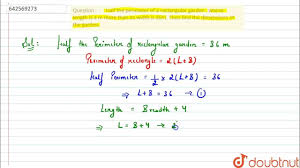 642569273
Question : Half the perimeter of a rectangular garden, whose
length is 4 m more than its width is 36m. Then find the dimensions of
the garden.
Solⁿ: Half the Perimeter of rectangular garden = 36 m
Perimeter of rectangle = 2(L+B)
Half Perimeter = 1/2 × 2(L+B) = 36
⇒ L+B = 36 → ①
Length = Breadth + 4
⇒ L = B+4 →
doubtnut